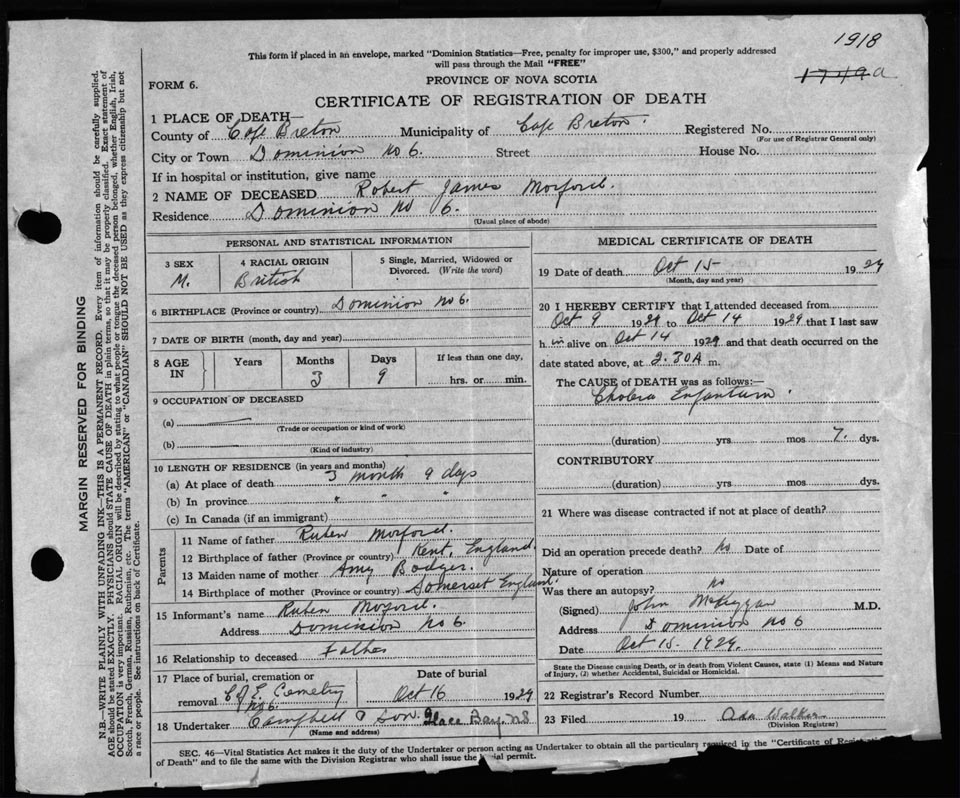 1918
This form if placed in an envelope, marked "Dominion Statistics—Free, penalty for improper use, $300," and properly addressed
will pass through the Mail "FREE"
1749a
FORM 6.
PROVINCE OF NOVA SCOTIA
CERTIFICATE OF REGISTRATION OF DEATH
1 PLACE OF DEATH—
County of Cape Breton Municipality of Cape Breton. Registered No.
(For use of Registrar General only)
City or Town Dominion No 6. Street House No.
If in hospital or institution, give name
2 NAME OF DECEASED Robert James Morford.
Residence Dominion No 6.
(Usual place of abode)
PERSONAL AND STATISTICAL INFORMATION
3 SEX 4 RACIAL ORIGIN 5 Single, Married, Widowed or
Divorced. (Write the word)
M. British
6 BIRTHPLACE (Province or country) Dominion No 6.
7 DATE OF BIRTH (month, day and year)
8 AGE IN Years Months Days If less than one day,
3 9 hrs. or min.
9 OCCUPATION OF DECEASED
(a)
(Trade or occupation or kind of work)
(b)
(Kind of industry)
10 LENGTH OF RESIDENCE (in years and months)
(a) At place of death 3 month 9 days
(b) In province " " "
(c) In Canada (if an immigrant)
Parents
11 Name of father Ruben Morford.
12 Birthplace of father (Province or country) Kent, England
13 Maiden name of mother Amy Bodger.
14 Birthplace of mother (Province or country) Somerset England.
15 Informant's name Ruben Morford.
Address Dominion No 6.
16 Relationship to deceased Father
17 Place of burial, cremation or Date of burial
removal C of E Cemetry No 6. Oct 16 1929
18 Undertaker Campbell & Son. Glace Bay. N.S.
(Name and address)
MEDICAL CERTIFICATE OF DEATH
19 Date of death Oct 15 1929
(Month, day and year)
20 I HEREBY CERTIFY that I attended deceased from
Oct 9 1929 to Oct 14 1929 that I last saw
h im alive on Oct 14 1929 and that death occurred on the
date stated above, at 2.30A m.
The CAUSE of DEATH was as follows:—
Cholera Enfantum.
(duration) yrs mos 7. dys.
CONTRIBUTORY
(duration) yrs mos dys.
21 Where was disease contracted if not at place of death?
Did an operation precede death? No Date of
Nature of operation
Was there an autopsy? No
(Signed) John McKiggan M.D.
Address Dominion No 6
Date Oct 15. 1929.
State the Disease causing Death, or in death from Violent Causes, state (1) Means and Nature
of Injury, (2) whether Accidental, Suicidal or Homicidal.
22 Registrar's Record Number
23 Filed 19 Ada Walker
(Division Registrar)
SEC. 46—Vital Statistics Act makes it the duty of the Undertaker or person acting as Undertaker to obtain all the particulars required in the "Certificate of Regist
of Death" and to file the same with the Division Registrar who shall issue the burial permit.
MARGIN RESERVED FOR BINDING
N.B.—WRITE PLAINLY WITH UNFADING INK—THIS IS A PERMANENT RECORD. Every item of information should be carefully supplied.
AGE should be stated EXACTLY. PHYSICIANS should STATE CAUSE OF DEATH in plain terms, so that it may be properly classified. Exact statement of
OCCUPATION is very important. RACIAL ORIGIN will be described by stating to what people or tongue the deceased person belonged, whether English, Irish,
Scotch, French, German, Russian, Ruthenian, etc. The terms "AMERICAN" or "CANADIAN" SHOULD NOT BE USED as they express citizenship but not
a race or people. See instructions on back of Certificate.